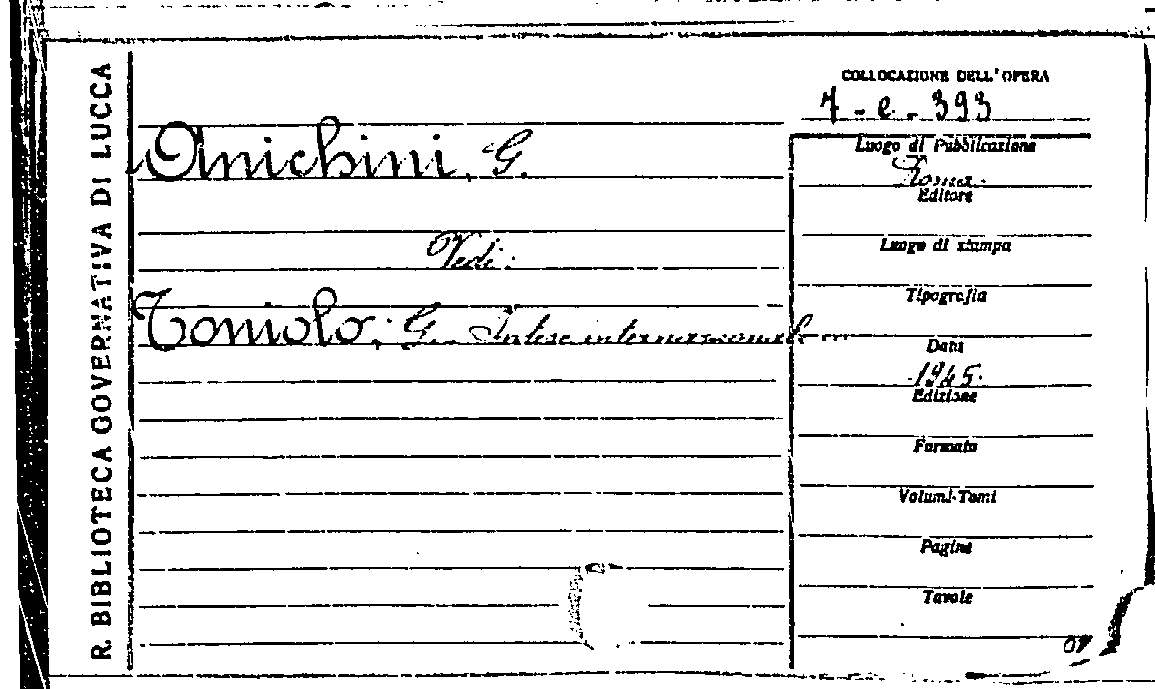 R. BIBLIOTECA GOVERNATIVA DI LUCCA
COLLOCAZIONE DELL'OPERA
7-e-393
Anichini, G.
Vedi:
Toniolo, G. Intese internazionali
Luogo di Pubblicazione
Roma.
Editore
Luogo di stampa
Tipografia
Data
1945.
Edizione
Formato
Volumi-Tomi
Pagine
Tavole